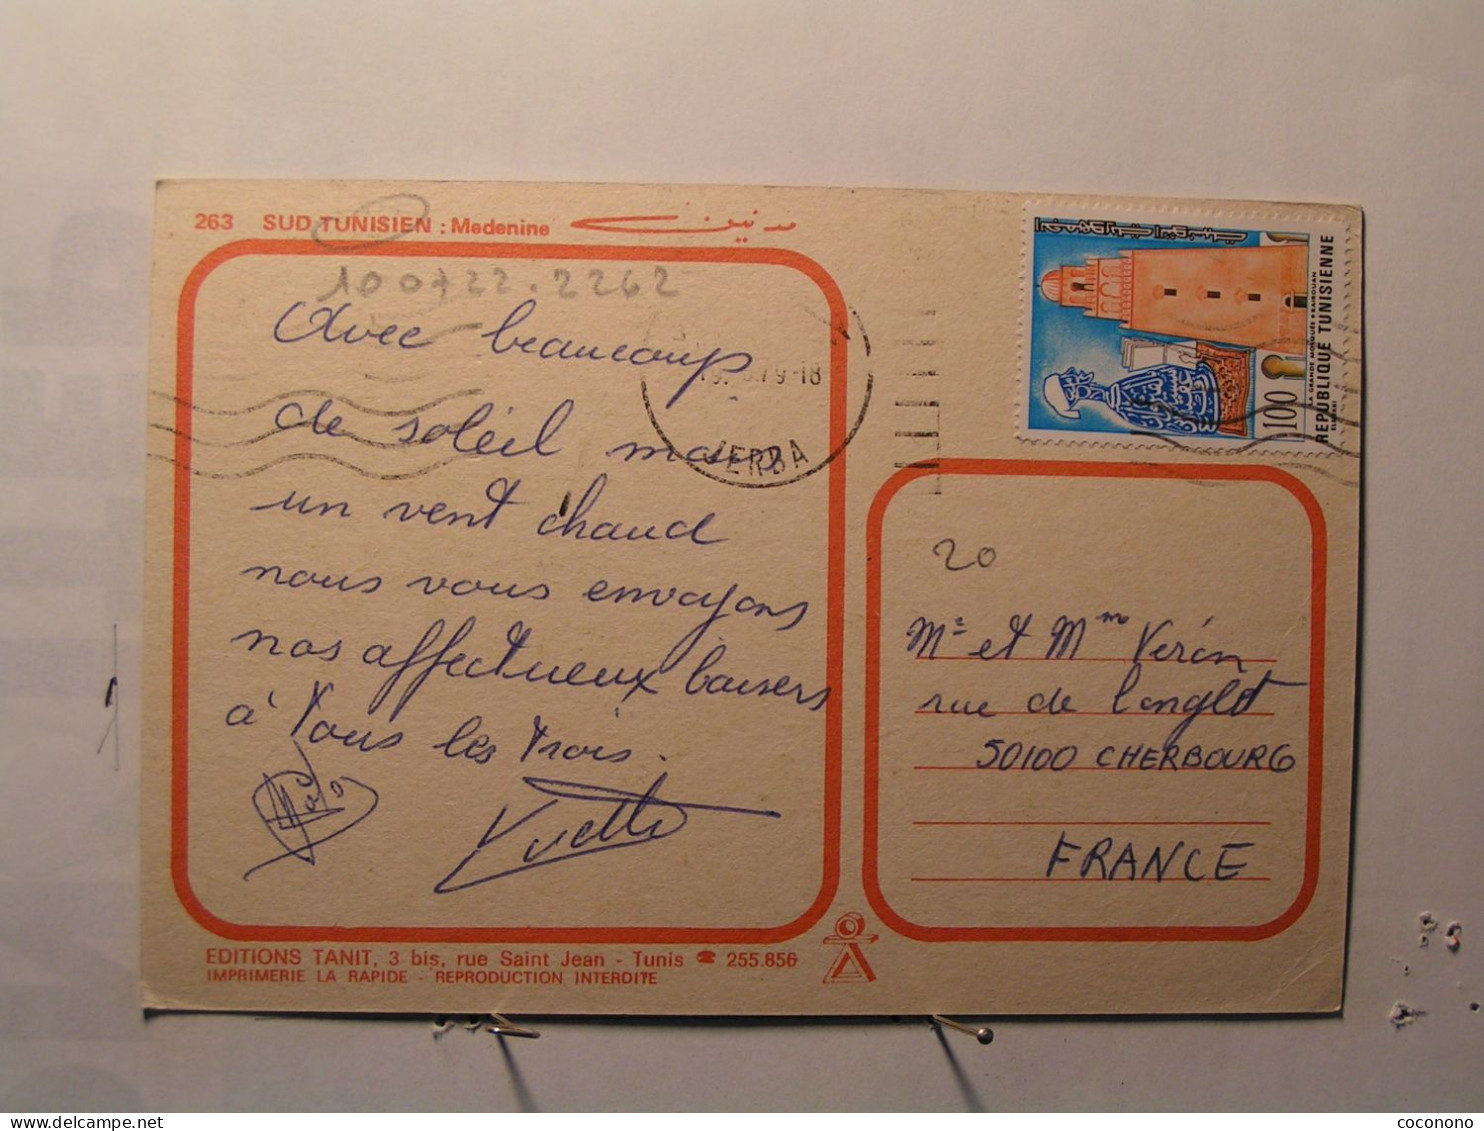 263 SUD TUNISIEN : Medenine مدنين
100722.2262
Avec beaucoup
de soleil mais
un vent chaud
nous vous envoyons
nos affectueux baisers
à tous les trois.
Yvette
EDITIONS TANIT, 3 bis, rue Saint Jean - Tunis ☎ 255.856
IMPRIMERIE LA RAPIDE - REPRODUCTION INTERDITE
79-18
JERBA
REPUBLIQUE TUNISIENNE
LA GRANDE MOSQUÉE KAIROUAN
ELMEKKI
100
20
Mr et Mme Verin
rue de Longlet
50100 CHERBOURG
FRANCE
coconono